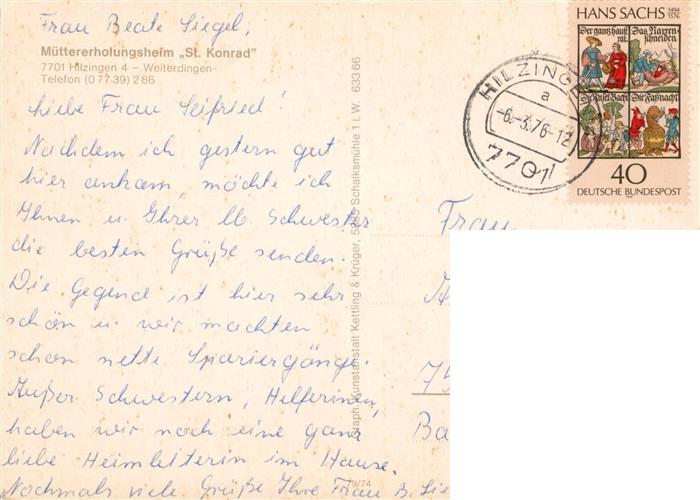 Frau Beate Siegel,
Müttererholungsheim „St. Konrad"
7701 Hilzingen 4 – Weiterdingen
Telefon (0 77 39) 2 86
Liebe Frau Seifried!
Nachdem ich gestern gut
hier ankam, möchte ich
Ihnen u. Ihrer lb. Schwester
die besten Grüße senden.
Die Gegend ist hier sehr
schön u. wir machten
schon nette Spaziergänge.
Außer Schwestern, Helferinen,
haben wir noch eine ganz
liebe Heimleiterin im Hause.
Nochmals viele Grüße Ihre Frau B. Sie
Graph. Kunstanstalt Kettling & Krüger, 5885 Schalksmühle 1 i. W. 633 66
9/74
HANS SACHS 1494 1576
Der gantz haußrat. Das Narrenschneiden
Die Faßnacht
40
DEUTSCHE BUNDESPOST
HILZINGE
a
-6.-3.76-12
7701
Frau
75
Ba